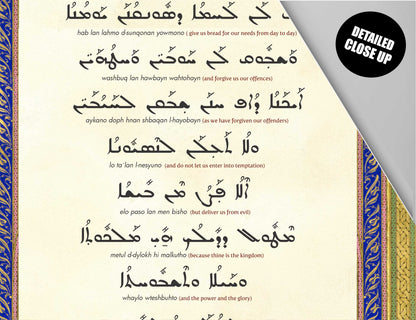 DETAILED
CLOSE UP
ܗܒ ܠܢ ܠܚܡܐ ܕܣܘܢܩܢܢ ܝܘܡܢܐ
hab lan lahmo d-sunqonan yowmono ( give us bread for our needs from day to day)
ܘܫܒܘܩ ܠܢ ܚܘܒܝܢ ܘܚܛܗܝܢ
washbuq lan hawbayn wahtohayn (and forgive us our offences)
ܐܝܟܢܐ ܕܐܦ ܚܢܢ ܫܒܩܢ ܠܚܝܒܝܢ
aykano doph hnan shbaqan l-hayobayn (as we have forgiven our offenders)
ܘܠܐ ܬܥܠܢ ܠܢܣܝܘܢܐ
lo ta`lan l-nesyuno (and do not let us enter into temptation)
ܐܠܐ ܦܨܢ ܡܢ ܒܝܫܐ
elo paso lan men bisho (but deliver us from evil)
ܡܛܘܠ ܕܕܝܠܟ ܗܝ ܡܠܟܘܬܐ
metul d-dylokh hi malkutha (because thine is the kingdom)
ܘܚܝܠܐ ܘܬܫܒܘܚܬܐ
whaylo wteshbuhto (and the power and the glory)